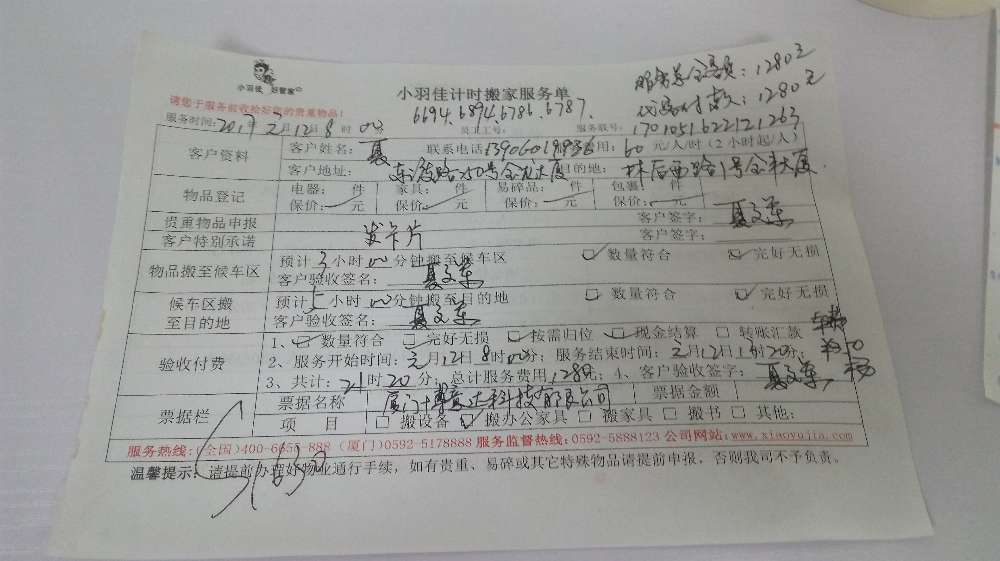 小羽佳 好管家
小羽佳计时搬家服务单
服务总金额：1280元
代收付款：1280元
请您于服务前收拾好您的贵重物品！
6694.6894.6786.6787.
服务时间：2017年2月12日8时00分
员工工号：
服务联号：1701051622121263
客户资料
客户姓名：夏
联系电话
费用：60元/人/时（2小时起/人）
客户地址：
目的地：林后西路1号金秋大厦
物品登记
电器： 件 家具： 件 易碎品： 件 包裹： 件
保价： 元 保价： 元 保价： 元 保价： 元
贵重物品申报
客户签字：夏文东
客户特别承诺
发卡片
客户签字：
物品搬至候车区
预计3小时00分钟搬至候车区
数量符合 完好无损
客户验收签名：夏文东
候车区搬至目的地
预计5小时00分钟搬至目的地
数量符合 完好无损
客户验收签名：夏文东
验收付费
1、数量符合 完好无损 按需归位 现金结算 转账汇款
2、服务开始时间：2月12日8时00分；服务结束时间：2月12日
3、共计：21时20分；总计服务费用1280元；4、客户验收签字：夏文东
票据栏
票据名称
科技有限公司
票据金额
项 目
搬设备 搬办公家具 搬家具 搬书 其他：
服务热线：(全国)400-6655-888 (厦门)0592-5178888 服务监督热线：0592-5888123 公司网站：www.xiaoyujia.com
温馨提示：请提前办理好物业通行手续，如有贵重、易碎或其它特殊物品请提前申报，否则我司不予负责。